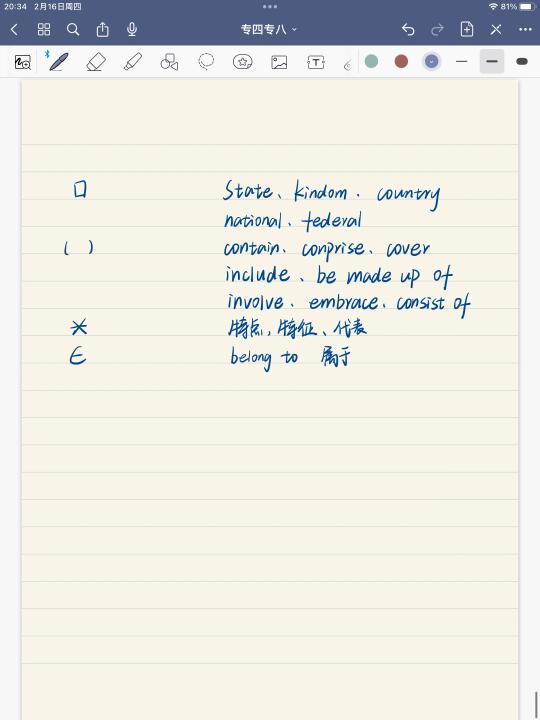 20:34 2月16日周四 81%
专四专八
T
口 State、kindom. country
national、federal
( ) contain. conprise. cover
include、be made up of
involve. embrace. consist of
* 特点, 特征、代表
∈ belong to 属于